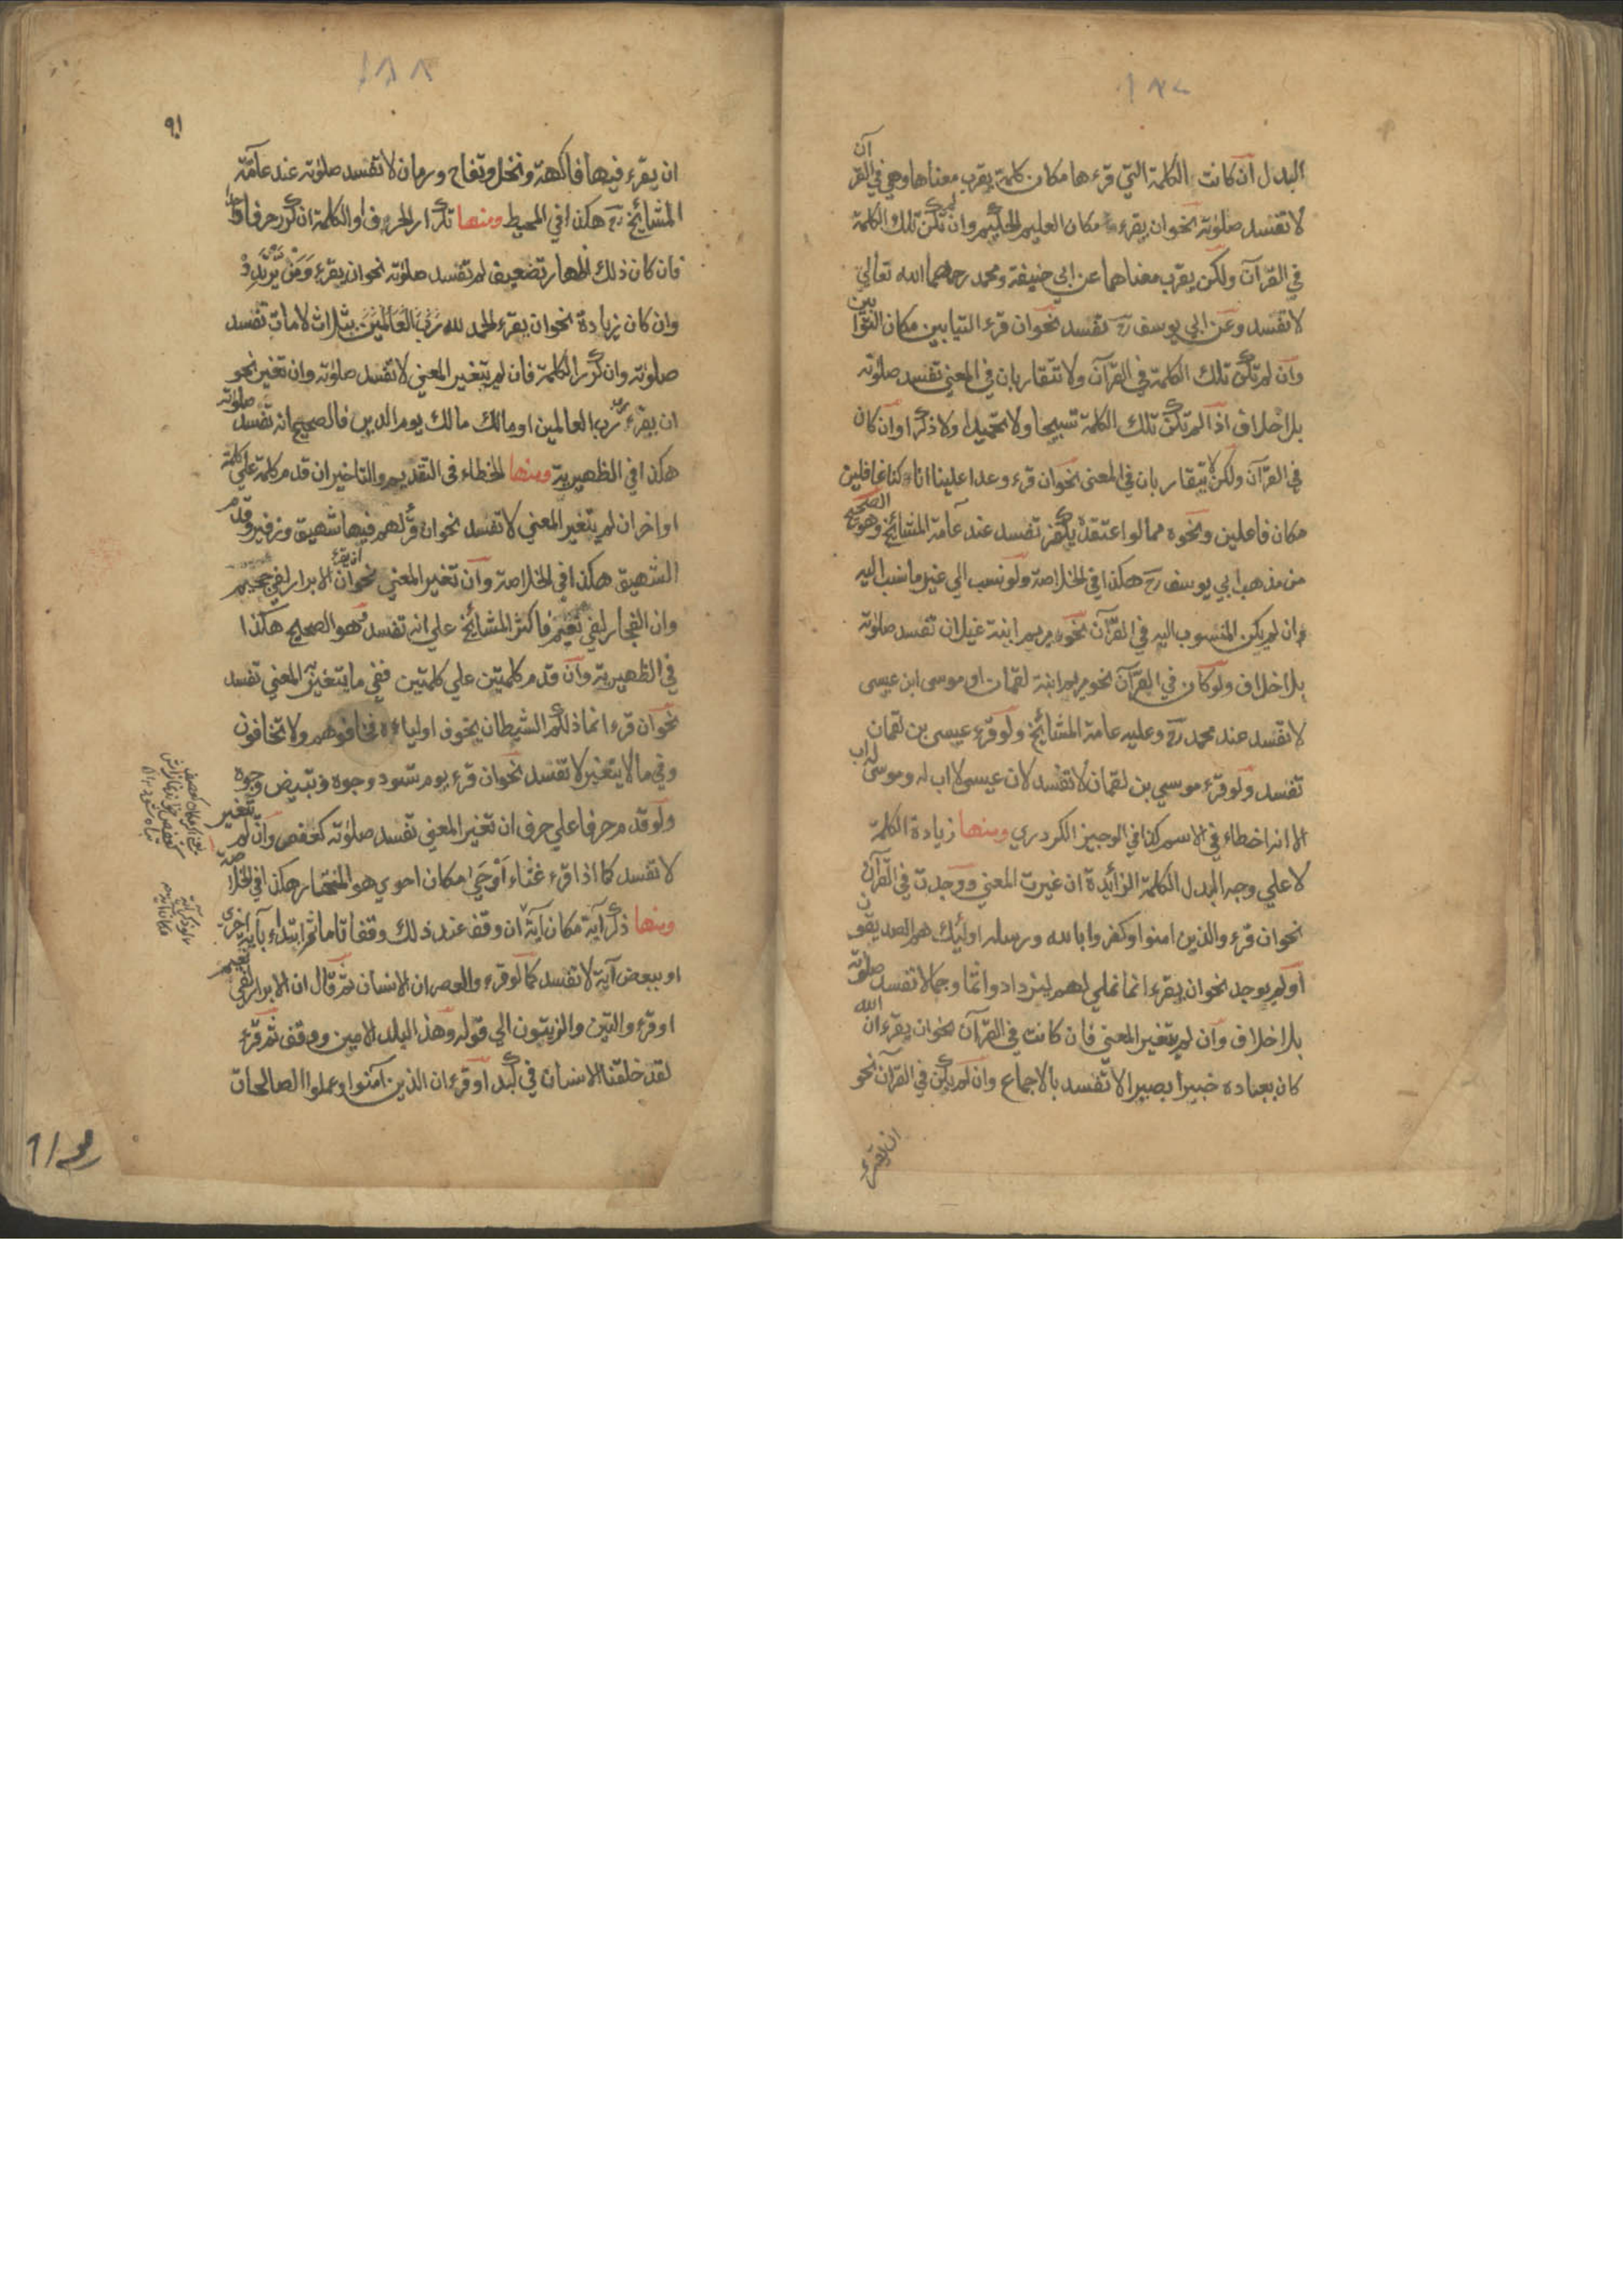 ١٨٧
البدل ان كانت الكلمة التي قرءها مكان كلمة يقرب معناها وهي في القرآن
لا تفسد صلوته نحو ان يقرء مكان العليم الحكيم وان لم تكن تلك الكلمة
في القرآن ولكن يقرب معناهما عن ابي حنيفة ومحمد رحمهما الله تعالي
لا تفسد وعن ابي يوسف رح تفسد نحو ان قرء التيابين مكان التوابين
وان لم تكن تلك الكلمة في القرآن ولا تتقاربان في المعني تفسد صلوته
بلا خلاف اذا لم تكن تلك الكلمة تسبيحا ولا تحميدا ولا ذكرا وان كان
في القرآن ولكن لا يتقاربان في المعنى نحو ان قرء وعدا علينا انا كنا غافلين
مكان فاعلين ونحوه مما لو اعتقده يكفر تفسد عند عآمة المشائخ وهو الصحيح
من مذهب ابي يوسف رح هكذا في الخلاصة ولو نسب الي غير ما نسب اليه
ان لم يكن المنسوب اليه في القرآن نحو مريم ابنة غيلان تفسد صلوته
بلا خلاف ولو كان في القرآن نحو مريم ابنة لقمان او موسى ابن عيسى
لا تفسد عند محمد رح وعليه عامة المشائخ ولو قرء عيسى بن لقمان
تفسد ولو قرء موسي بن لقمان لا تفسد لان عيسى لا اب له وموسى له اب
الا انه اخطاء في الاسم كذا في الوجيز الكردري ومنها زيادة الكلمة
لا علي وجه البدل الكلمة الزائدة ان غيرت المعني ووجدت في القرآن
نحو ان قرء والذين امنوا وكفروا بالله ورسله اولئك هم الصديقون
او لم يوجد نحو ان يقرء انما نملي لهم ليزدادوا اثما وجمالا تفسد صلوته
بلا خلاف وان لم يتغير المعني فان كانت في القرآن نحو ان يقرء ان الله
كان بعباده خبيرا بصيرا لا تفسد بالاجماع وان لم يكن في القرآن نحو
ان يقرء
١٨٨
٩١
ان يقرء فيها فاكهة ونخل وتفاح ورمان لا تفسد صلوته عند عآمة
المشائخ رح هكذا في المحيط ومنها تكرار الحرف او الكلمة ان كرر حرفا واحدا
فان كان ذلك اظهار تضعيف لم تفسد صلوته نحو ان يقرء وَمَنْ يَرْتَدِدْ
وان كان زيادة نحو ان يقرء الحمد لله رَبِّ الْعَالَمِيْنَ بثلاث لامات تفسد
صلوته وان كرر الكلمة فان لم يتغير المعني لا تفسد صلوته وان تغير نحو
ان يقرء رب رب العالمين او مالك مالك يوم الدين فالصحيح انه تفسد صلوته
هكذا في الظهيرية ومنها الخطاء فى التقديم والتاخير ان قدم كلمة علي كلمة
او اخر ان لم يتغير المعني لا تفسد نحو ان قرء لهم فيها شهيق وزفير وقدم
الشهيق هكذا في الخلاصة وان تغير المعني نحو ان يقرء ان الابرار لفي جحيم
وان الفجار لفي نعيم فاكثر المشائخ علي انه تفسد وهو الصحيح هكذا
في الظهيرية وان قدم كلمتين علي كلمتين ففي ما يتغير به المعني تفسد
نحو ان قرء انما ذلكم الشيطان يخوف اولياءه فخافوهم ولا تخافون
وفي ما لا يتغير لا تفسد نحو ان قرء يوم تسود وجوه وتبيض وجوه
ولو قدم حرفا علي حرف ان تغير المعني تفسد صلوته كعفص وان لم تتغير
لا تفسد كما اذا قرء غثاء اَوْحَىٰ مكان احوي هو المختار هكذا في الخلاصة
ومنها ذكر آية مكان آية ان وقف عند ذلك وقفا تاما ثم ابتداء بآية اخرى
او ببعض آية لا تفسد كما لو قرء والعصر ان الانسان ثم قال ان الابرار لفي نعيم
او قرء والتين والزيتون الي قوله وهذ البلد الامين ووقف ثم قرء
لقد خلقنا الانسان في كبد او قرء ان الذين آمنوا وعملوا الصالحات